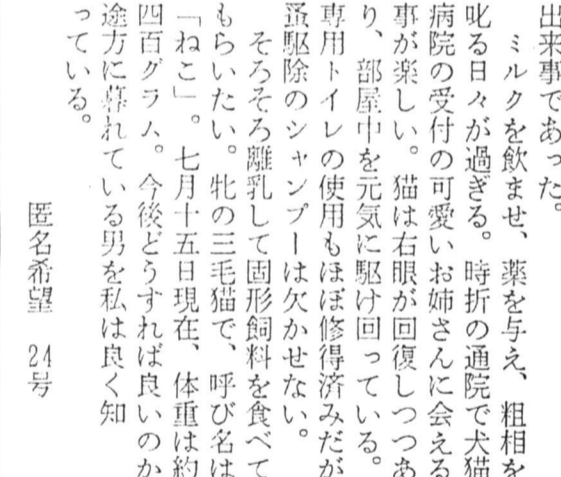 出来事であった。
ミルクを飲ませ、薬を与え、粗相を
叱る日々が過ぎる。時折の通院で犬猫
病院の受付の可愛いお姉さんに会える
事が楽しい。猫は右眼が回復しつつあ
り、部屋中を元気に駆け回っている。
専用トイレの使用もほぼ修得済みだが
蚤駆除のシャンプーは欠かせない。
そろそろ離乳して固形飼料を食べて
もらいたい。牝の三毛猫で、呼び名は
「ねこ」。七月十五日現在、体重は約
四百グラム。今後どうすれば良いのか
途方に暮れている男を私は良く知
っている。
匿名希望 24号